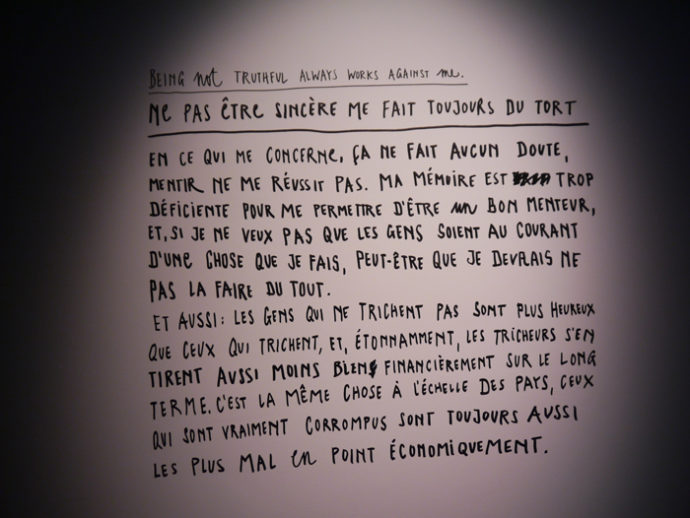 BEING not TRUTHFUL ALWAYS WORKS AGAINST me.
NE PAS ÊTRE SINCÈRE ME FAIT TOUJOURS DU TORT
EN CE QUI ME CONCERNE, ÇA NE FAIT AUCUN DOUTE,
MENTIR NE ME RÉUSSIT PAS. MA MÉMOIRE EST TROP
DÉFICIENTE POUR ME PERMETTRE D'ÊTRE un BON MENTEUR,
ET, SI JE NE VEUX PAS QUE LES GENS SOIENT AU COURANT
D'UNE CHOSE QUE JE FAIS, PEUT-ÊTRE QUE JE DEVRAIS NE
PAS LA FAIRE DU TOUT.
ET AUSSI: LES GENS QUI NE TRICHENT PAS SONT PLUS HEUREUX
QUE CEUX QUI TRICHENT, ET, ÉTONNAMMENT, LES TRICHEURS S'EN
TIRENT AUSSI MOINS BIEN FINANCIÈREMENT SUR LE LONG
TERME. C'EST LA MÊME CHOSE À L'ÉCHELLE DES PAYS, CEUX
QUI SONT VRAIMENT CORROMPUS SONT TOUJOURS AUSSI
LES PLUS MAL en POINT ÉCONOMIQUEMENT.